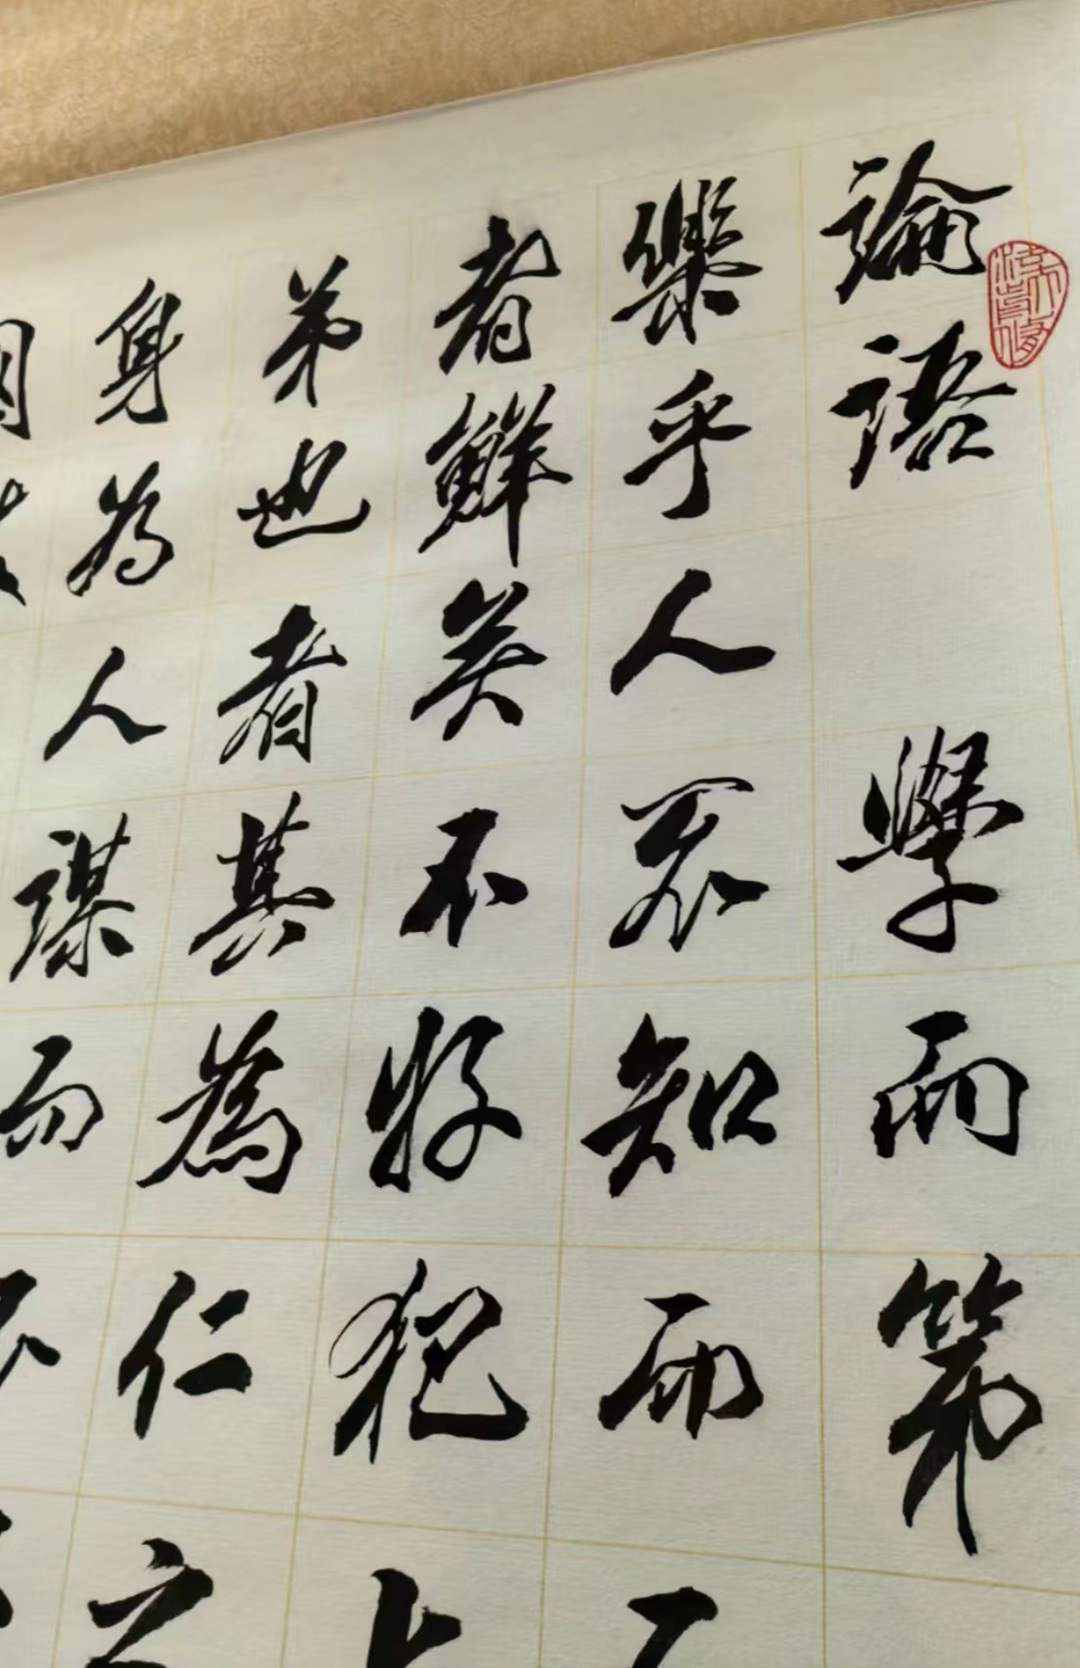 論語 學而第
樂乎人不知而不
者鮮矣不好犯上
弟也者其為仁之
身為人謀而不